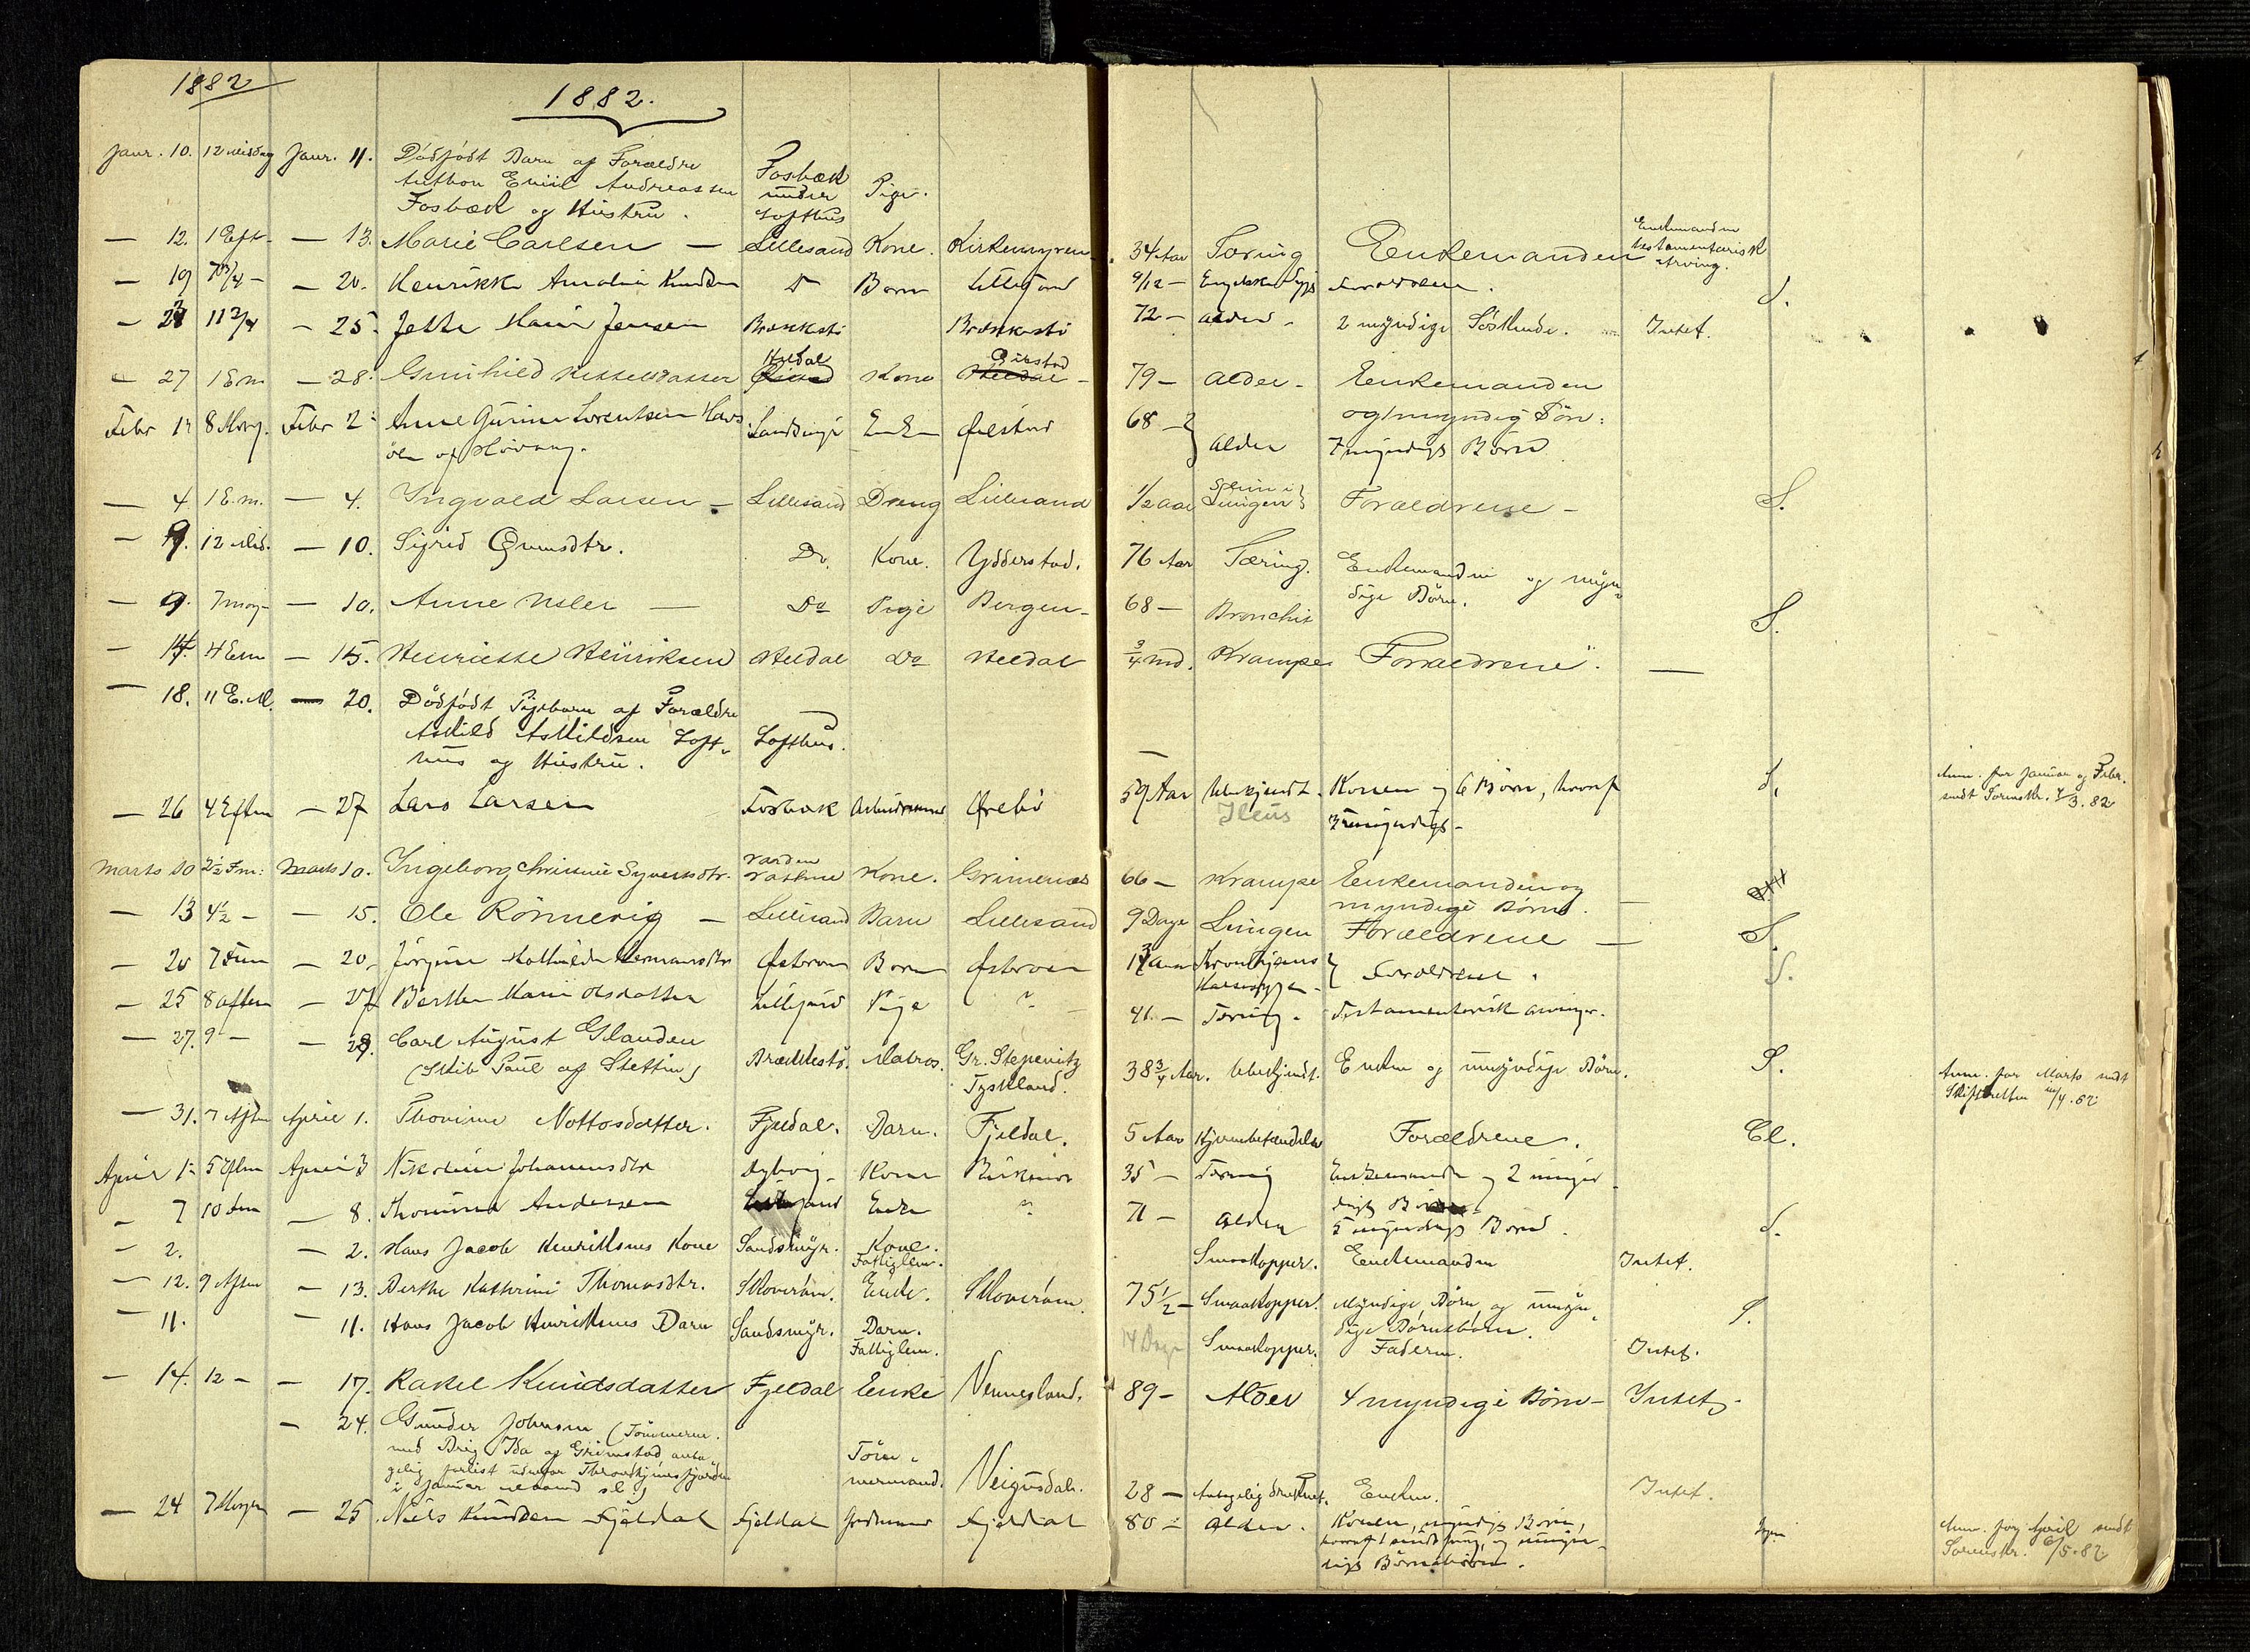 1882
1882.
Janr. 10. 12 Middag Janr. 11. Dödfödt Barn af Forældre
Anthon Emil Andreassen
Fosbæk og Hustru.
Fosbæk
under
Lofthus
Pige.
— 12. 1 Eft. — 13. Marie Carlsen — Lillesand Kone. Kirkemyren
34 Aar Tæring Enkemanden
Enkemanden
testamentarisk
Arving.
— 19 — 20. Henrikke Amalia Knudsen Do Barn Lillejord
9/12 — Engelske Syge Forældrene. S.
— 24 11 3/4 — 25. Jette Marie Jensen Brækkestö Brækkestö
72 — Alder — 2 myndige Söskende. Intet.
— 27 1 Em — 28. Gunhild Kittelsdatter Heldal Kone Øiestad
79 — Alder — Enkemanden
og 1 myndig Sön:
Febr 1 8 Morg. Febr 2 Anne Gurine Lorentsen
af Hövaag.
Enke Øiestad
68 — Alder 7 myndige Börn
— 4 1 E.m. — 4. Ingvald Larsen — Lillesand Dreng Lillesand
1/2 Aar Slim i
Lungen Forældrene — S.
— 9. 12 Mid. — 10. Sigrid Gumsdtr. Do. Kone. Ydderstad.
76 Aar Tæring. Enkemanden og myn-
dige Börn.
— 9. 7 morg — 10. Anne Isler — Do Pige Bergen —
68 — Bronchit S.
— 14. 4 Em — 15. Henriette Henriksen Heldal Do Heldal
3/4 Md. Krampe Forældrene. —
— 18. 11 E.M. — 20. Dödfödt Pigebarn af Forældre
Askild Askildsen Loft-
hus og Hustru.
Lofthus.
— 26 4 Eftm — 27 Lars Larsen Fosbæk Arbeidsmand Ørebö
59 Aar Ubekjendt. Konen og 6 Börn, hvoraf
Ileus
3 umyndige —
S.
Anm. for Januar og Febr.
sendt Sorenskr. 7/3. 82
Marts 10 2 1/2 Fm: Marts 10. Ingeborg Christine Syvertsdtr. Kone. Grimenæs
66 — Krampe Enkemanden og
myndige Börn. —
— 13 4 1/2 — — 15. Ole Rönnevig — Lillesand Barn Lillesand
9 Dage Lungen Forældrene — S.
— 20 7 Fm — 20. Jörgine Mathilde Hermansdtr Østeröen Barn Østeröen
Forældrene. S.
— 25 8 aften — 27 Berthe Marie Olsdatter Lillejord Pige "
41 — Tæring. Testamentarisk arvinger.
— 27. 9 — — 29. Carl August Glanden
(Skib Paul af Stettin)
Brækkestö. Matros. Gr. Stepenitz
Tyskland.
38 3/4 Aar. Ubekjendt. Enken og umyndige Börn. S.
Anm. for Marts sendt
Skifteretten 11/4. 82
— 31. 7 Aften April 1. Thorine Nottosdatter. Fjeldal. Barn. Fjeldal.
5 Aar Hjernebetændelse Forældrene. Cl.
April 1 5 Eftm April 3 Nikoline Johannesdtr Dybvig — Kone Birkenæs
35 — Tæring Enkemanden og 2 umyn-
dige Börn
— 7 10 Fm — 8. Thomine Andersen Enke "
71 — Alder 5 myndige Börn. S.
— 2. — 2. Hans Jacob Henriksens Kone Sandsmyr. Kone.
Fattiglem.
Smaakopper. Enkemanden Intet.
— 12. 9 Aften — 13. Berthe Kathrine Thomasdtr. Skoveröen. Enke. Skoveröen.
75 1/2 — Smaakopper. Myndige Börn, og umyn-
dige Börnebörn. S.
— 11. — 11. Hans Jacob Henriksens Barn Sandsmyr. Barn.
Fattiglem.
14 Dage Smaakopper. Faderen. Intet.
— 14. 12 — — 17. Rakel Knudsdatter Fjeldal Enke Vennesland.
89 — Alder 4 myndige Börn — Intet.
— 24. Gunder Johnsen (Tömmerm.
med Brig Ida af Grimstad anta-
gelig forlist udenfor Throndhjemsfjorden
i Januar
Töm-
mermand. Veigusdal.
28 — Antagelig druknet. Enken. Intet.
— 24 7 Morgen — 25 Niels Knudsen Fjeldal Fjeldal Gaardmand Fjeldal
80 — Alder. Konen, myndige Börn,
hvoraf 1 sindssyg, og umyn-
dige Börnebörn.
Anm. for April sendt
Sorenskr. 6/5. 82